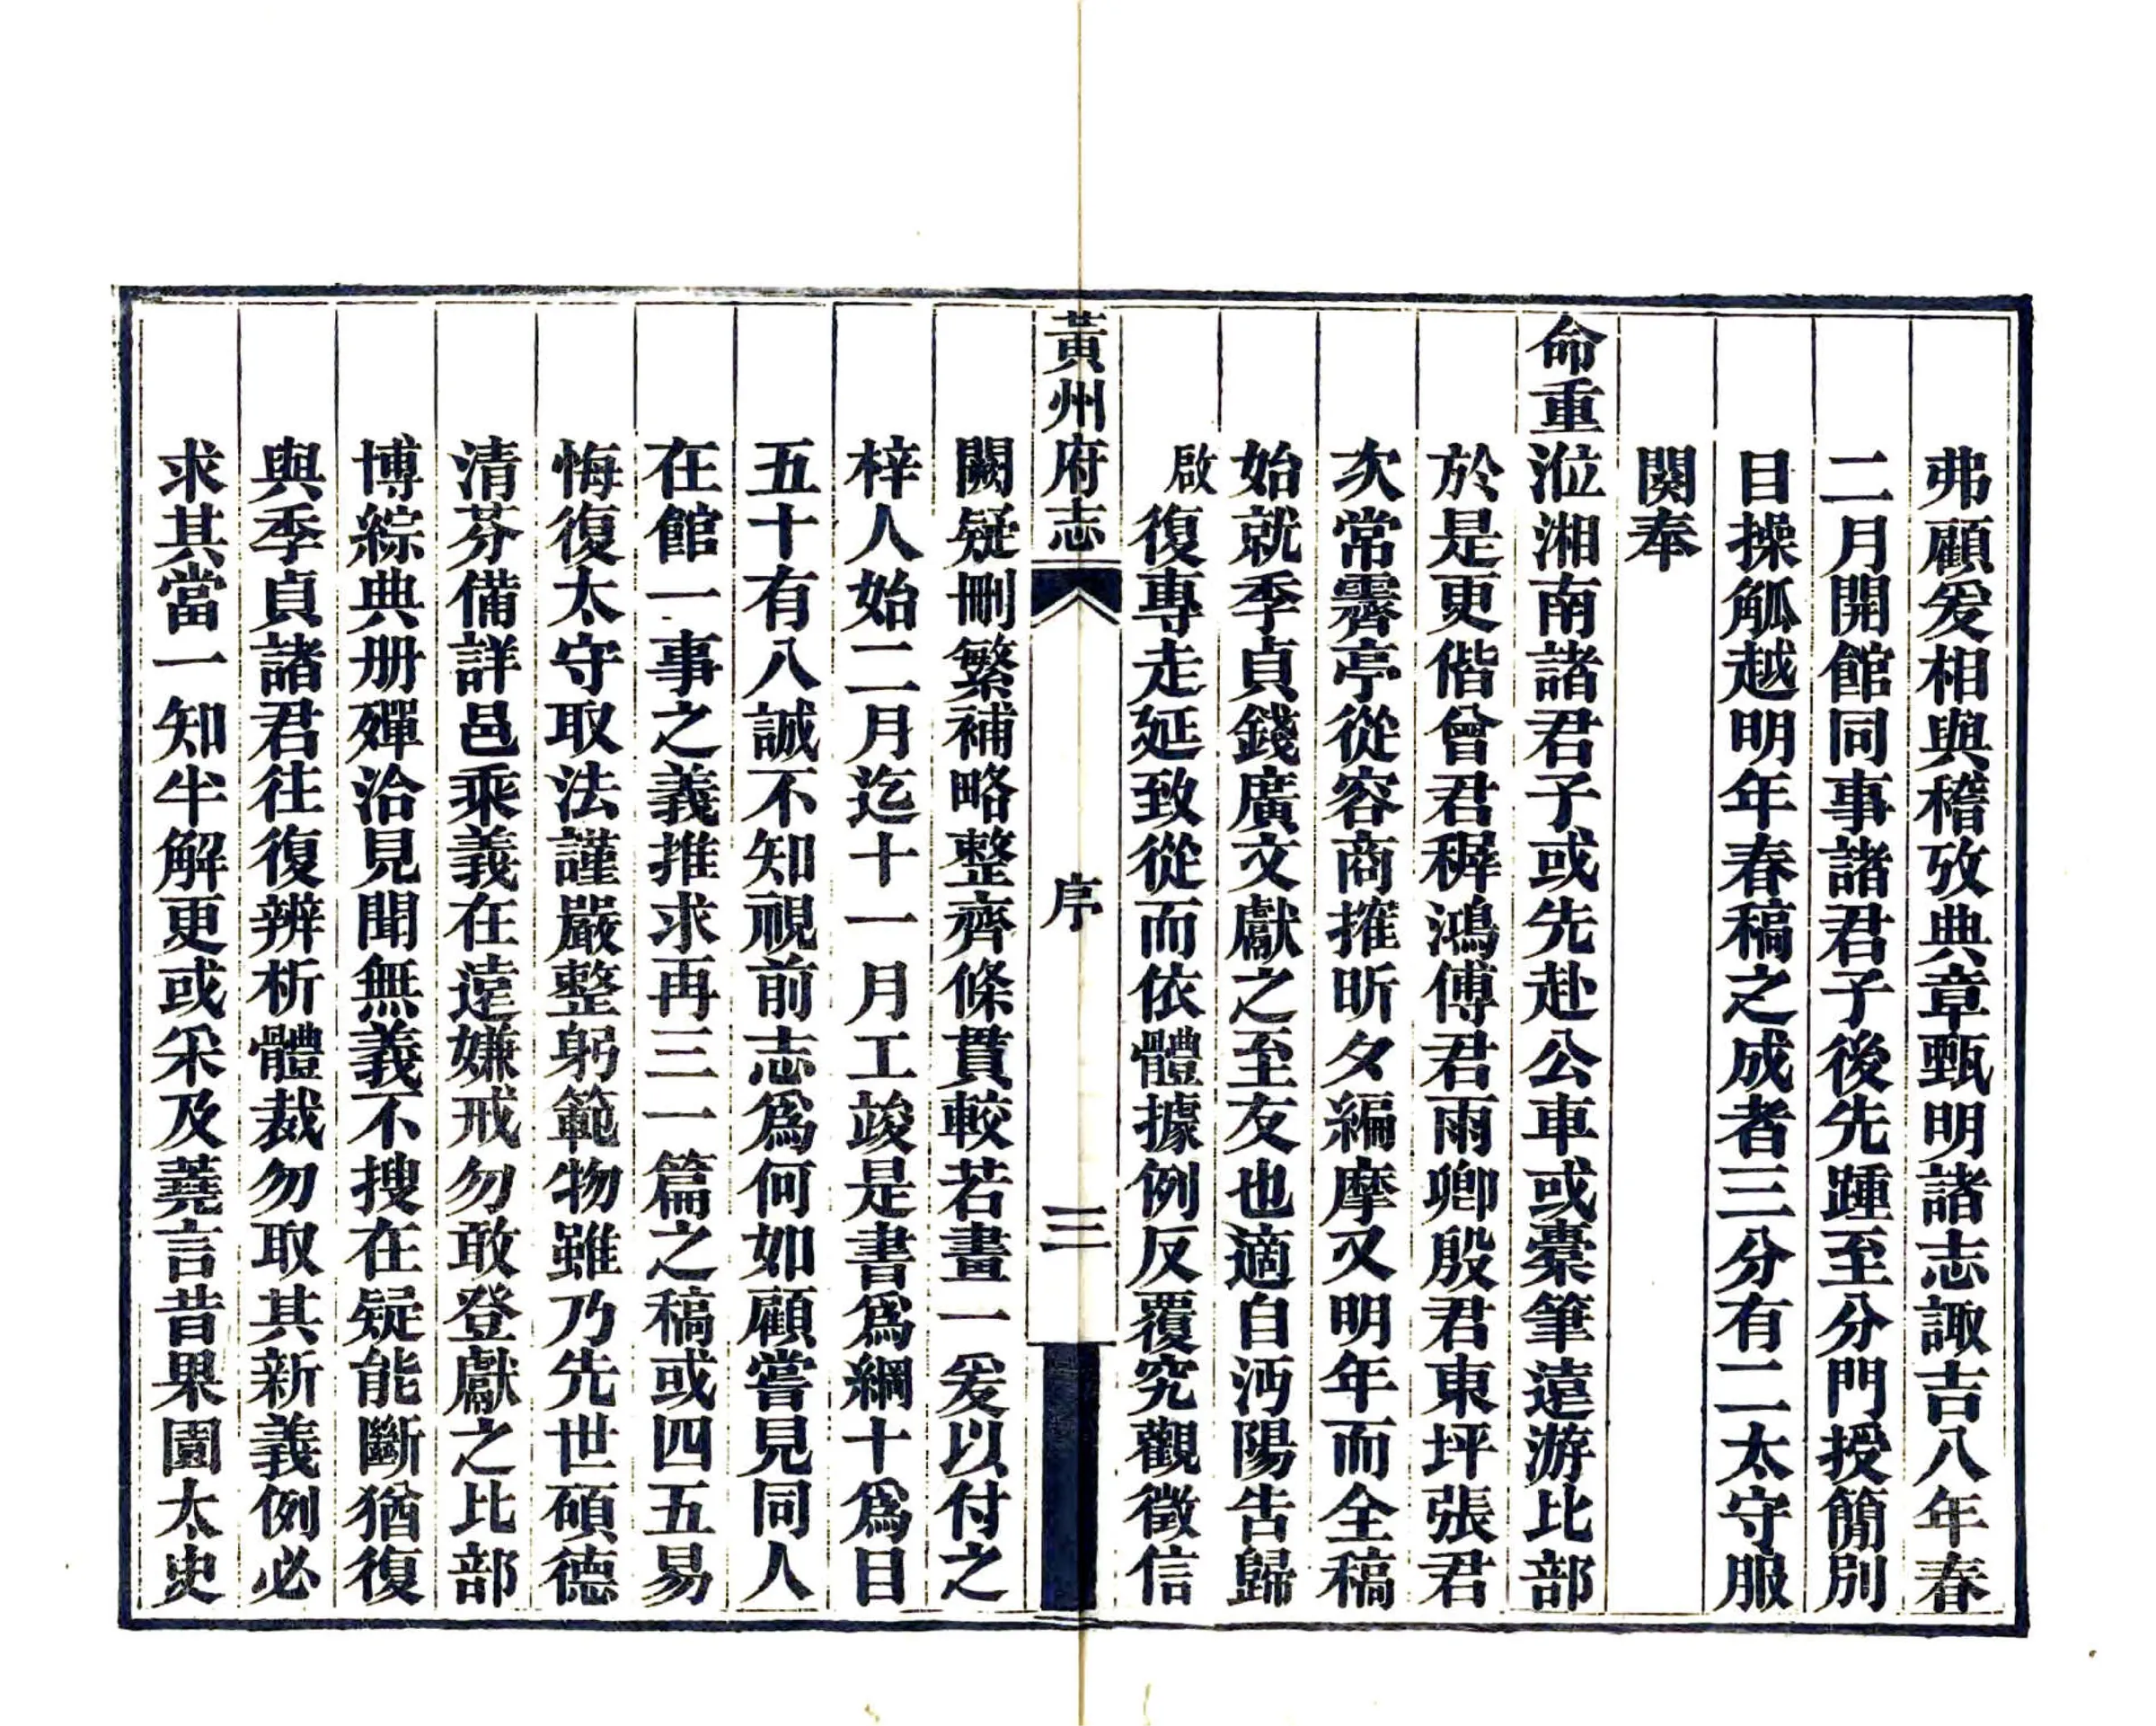 弗顧爰相與稽攷典章甄明諸志諏吉八年春
二月開館同事諸君子後先踵至分門授簡別
目操觚越明年春稿之成者三分有二太守服
闋奉
命重涖湘南諸君子或先赴公車或橐筆遠游比部
於是更偕曾君穉鴻傅君雨卿殷君東坪張君
次常霽亭從容商搉昕夕編摩又明年而全稿
始就季貞錢廣文獻之至友也適自沔陽告歸
啟復專走延致從而依體據例反覆究觀徵信
黃州府志 序 三
闕疑刪繁補略整齊條貫較若畫一爰以付之
梓人始二月迄十一月工竣是書爲綱十爲目
五十有八誠不知視前志爲何如顧嘗見同人
在館一事之義推求再三一篇之稿或四五易
悔復太守取法謹嚴整躬範物雖乃先世碩德
清芬備詳邑乘義在遠嫌戒勿敢登獻之比部
博綜典册殫洽見聞無義不搜在疑能斷猶復
與季貞諸君往復辨析體裁勿取其新義例必
求其當一知半解更或采及蕘言昔果園太史